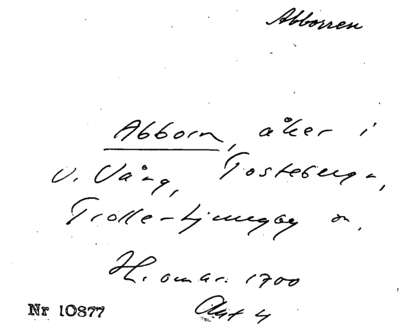 Abborren
Abborn, åker i
V. Vång, Tosteberga,
Trolle-Ljungby
H. omar. 1700
Nr 10877 Akt 4